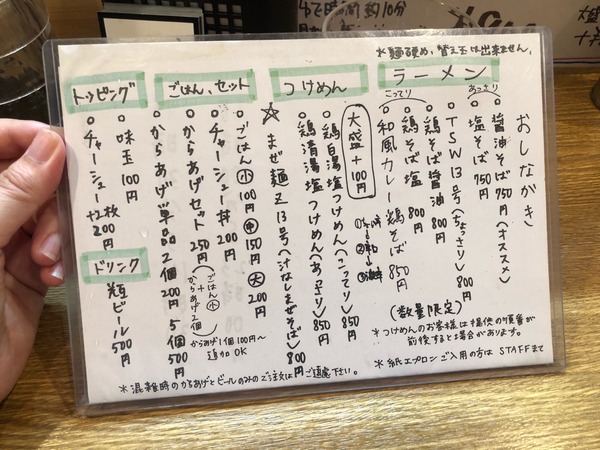 おしながき
＊麺硬め、替え玉は出来ません。
ラーメン
あっさり
○醤油そば 750円(オススメ)
○塩そば 750円
○TSW13号(ちょうさり) 800円
こってり
○鶏そば醤油 800円
○鶏そば塩 800円
○和風カレー鶏そば 850円
(数量限定)
つけめん
大盛+100円
○鶏白湯塩つけめん(こってり) 850円
○鶏清湯塩つけめん(あっさり) 850円
☆まぜ麺Z13号(汁なしまぜそば) 800円
＊つけめんのお客様は提供の順番が
前後する場合があります。
＊紙エプロンご入用の方はSTAFFまで
ごはん、セット
○ごはん 小100円 中150円 大200円
○チャーシュー丼 200円
○からあげセット 250円(ごはん小+からあげ2個)
○からあげ単品 2個200円 5個500円
からあげ1個100円〜
追加OK
トッピング
○味玉 100円
○チャーシュー +2枚 200円
ドリンク
瓶ビール 500円
＊混雑時のからあげとビールのみのご注文はご遠慮下さい。
ゆで時間約10分